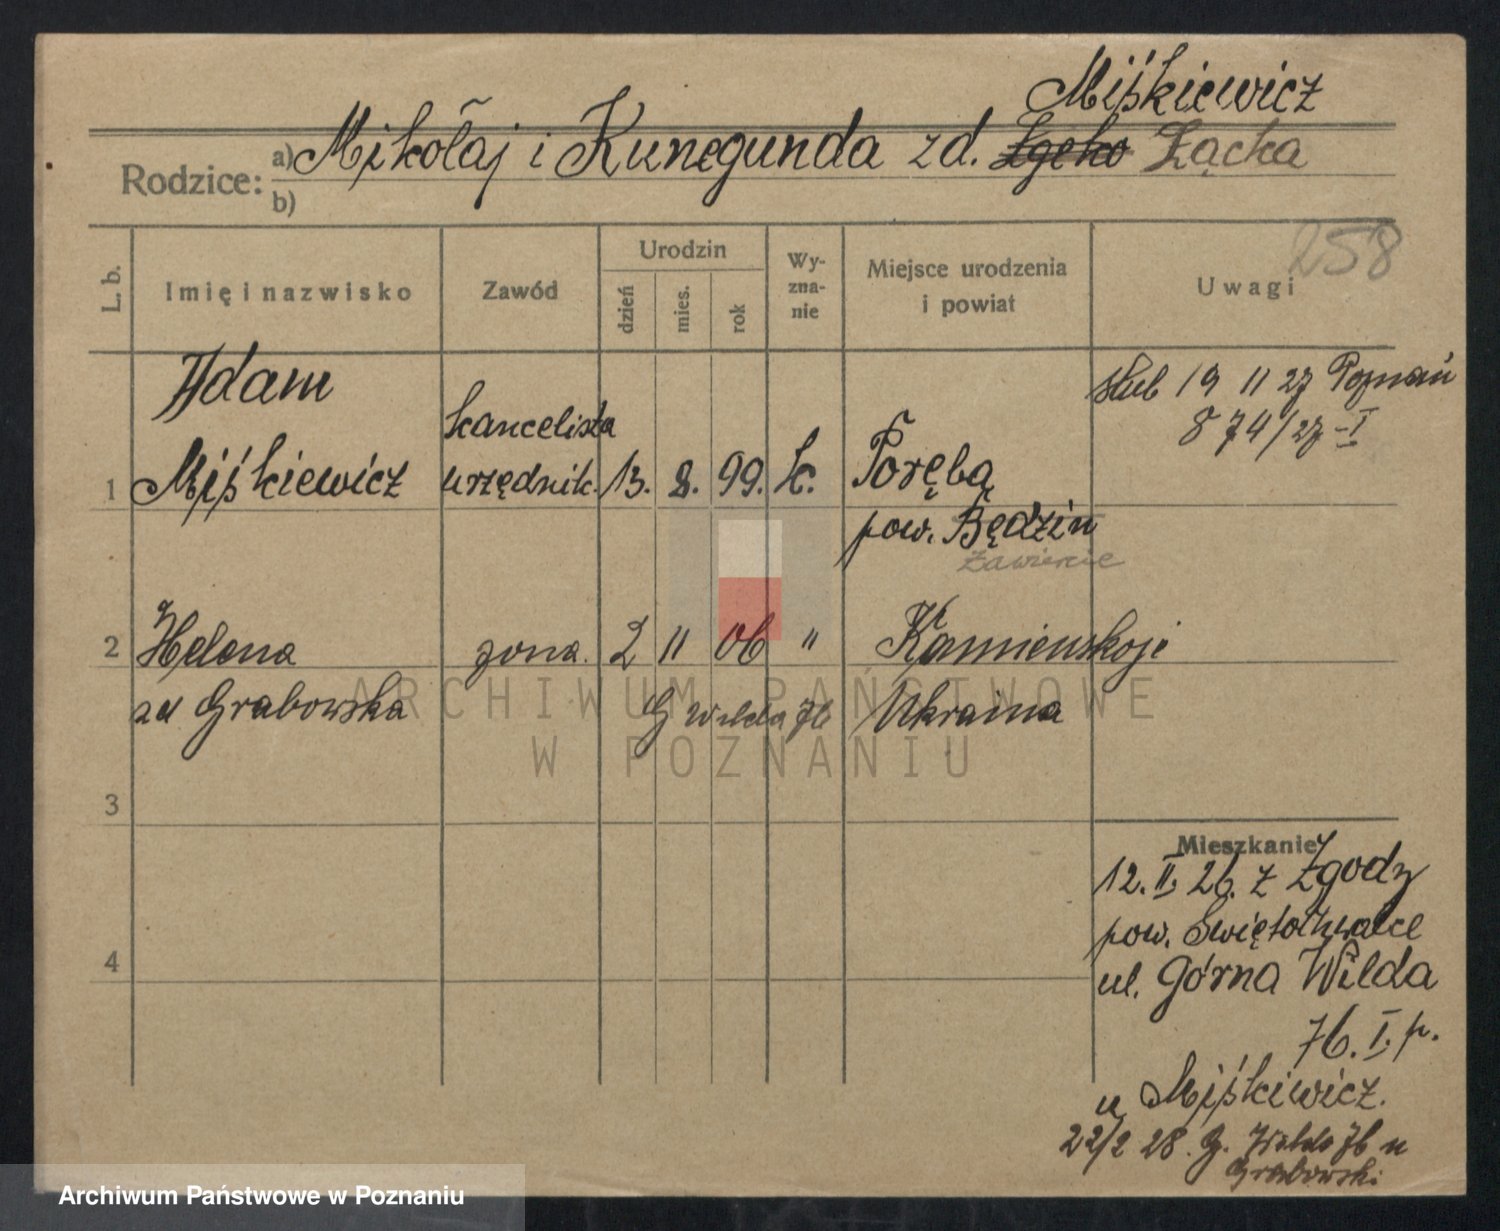 Miśkiewicz
Rodzice: a) Mikołaj i Kunegunda zd. Łącka
b)
258
L. b.
Imię i nazwisko
Zawód
Urodzin
dzień
mies.
rok
Wy-
zna-
nie
Miejsce urodzenia
i powiat
Uwagi
Adam
kancelista
ślub 19 11 27 Poznań
874/27-I
1 Miśkiewicz urzędnik. 13. 8. 99. k. Poręba
pow. Będzin
Zawiercie
2 Helena żona. 2 11 06 " Kamienskoje
zd Grabowska G Wilda 76 Ukraina
3
4
Mieszkanie
12. II. 26. z Zgody
pow. Świętochwałce
ul. Górna Wilda
76. I. p.
u Miśkiewicz.
22/2 28. G. Wilda 76 u
Grabowski
ARCHIWUM PAŃSTWOWE
W POZNANIU
Archiwum Państwowe w Poznaniu